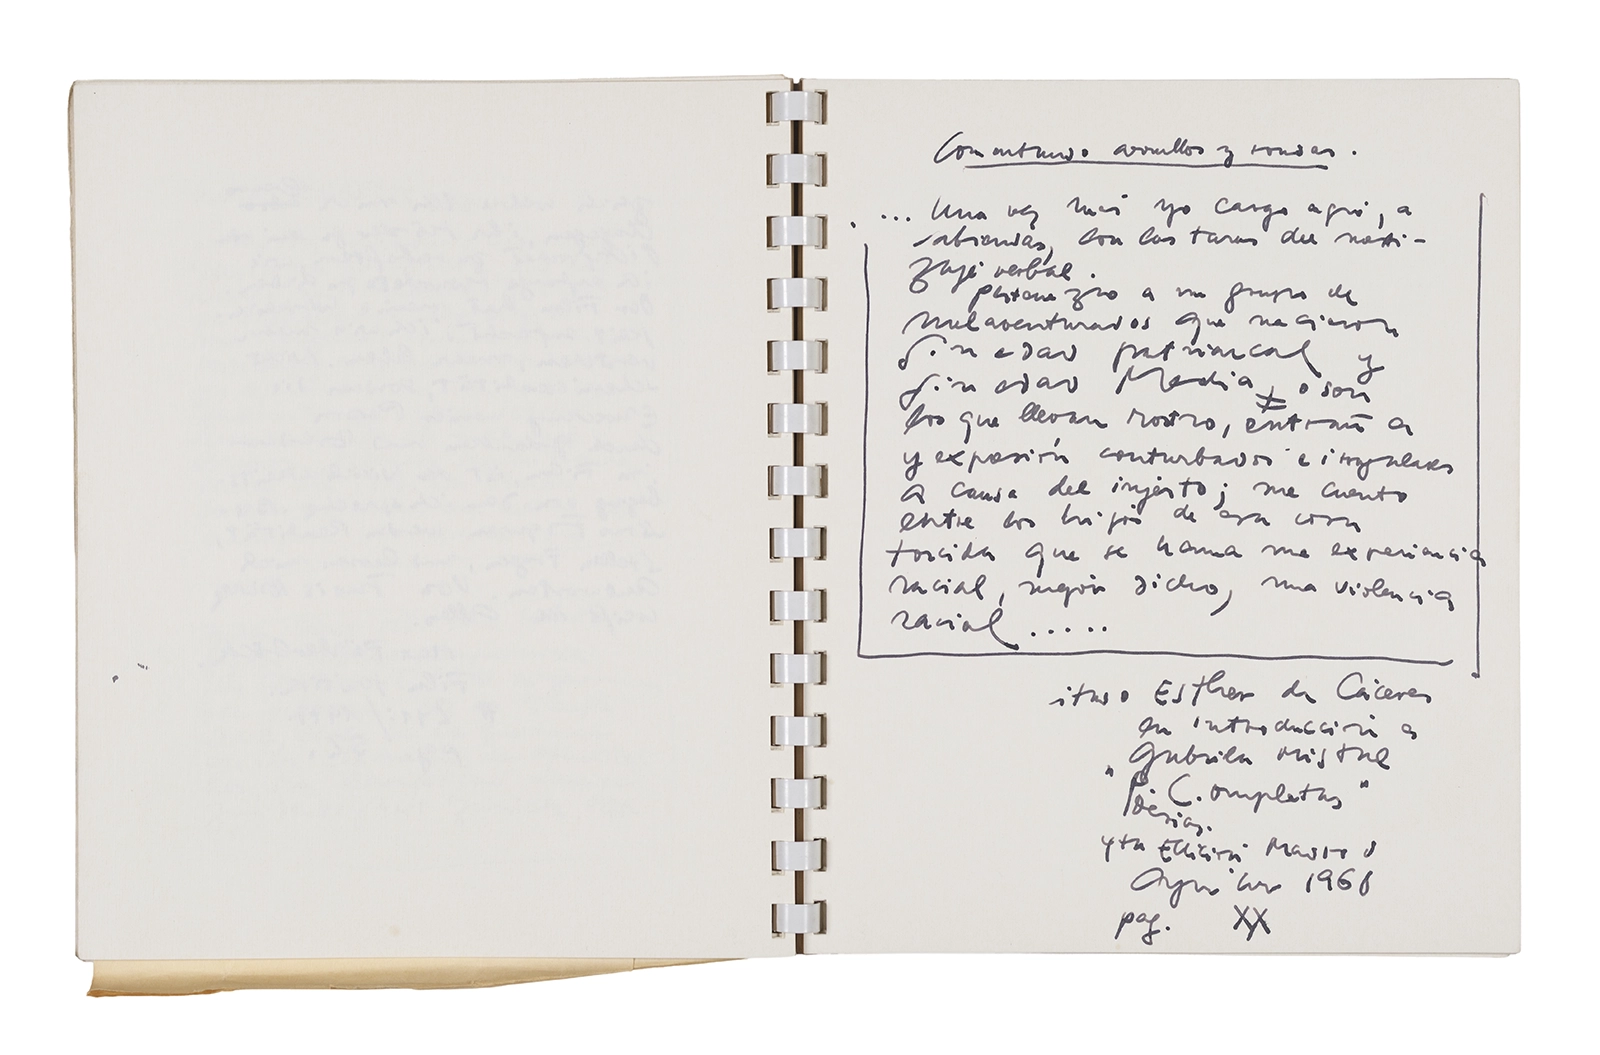 Comentando arrullos y rondas.
... Una vez más yo cargo aquí, a
sabiendas, con las taras del mesti-
zaje verbal.
pertenezco a un grupo de
malaventurados que nacieron
sin edad patriarcal y
sin edad Media, o son
los que llevan rostro, entraña
y expresión conturbados e irregulares
a causa del injerto; me cuento
entre los hijos de esa cosa
torcida que se llama una experiencia
racial, mejor dicho, una violencia
racial .....
Esther de Cáceres
en introducción a
Gabriela Mistral
"P. Completas"
Poesías.
4ta Edición Madrid
Aguilar 1968
pag. XX